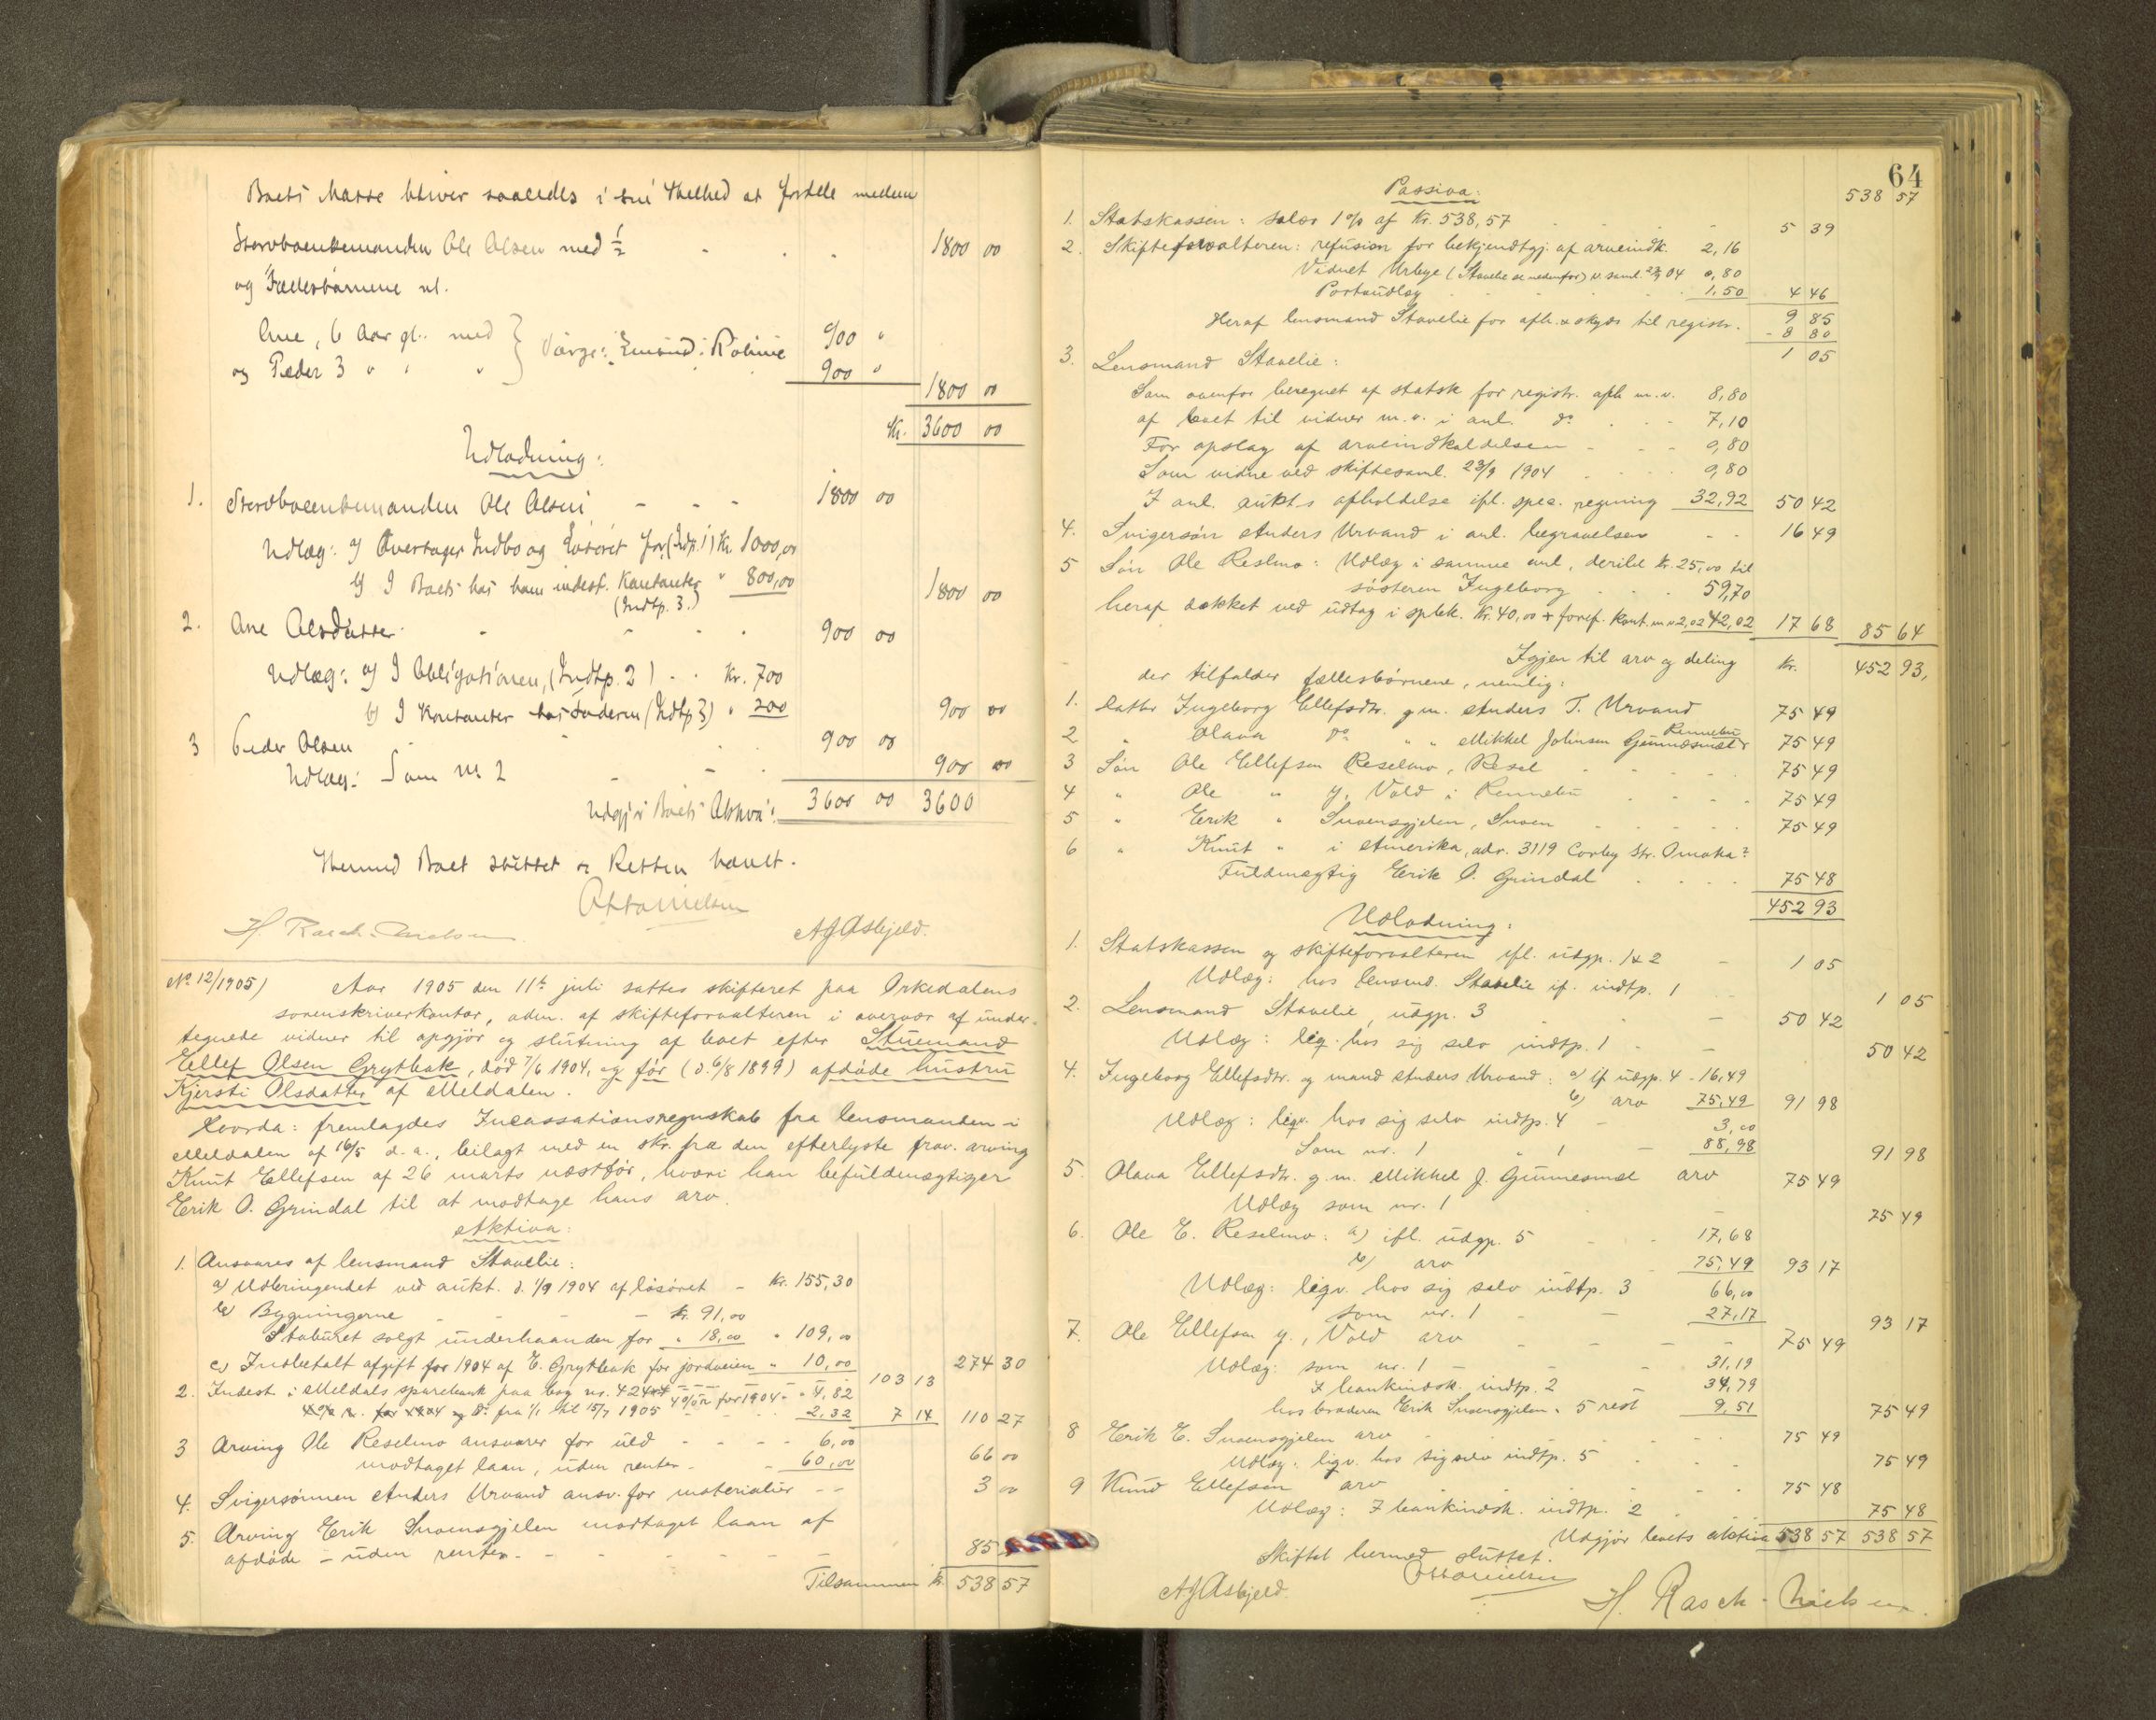 Boets Masse bliver saaledes i sin Helhed at fordele mellem
Stervboenkemanden Ole Olsen med ½ - - - 1800 00
og Fællesbørnene nl.
Ane, 6 Aar gl. med } Værge: 900 "
og Peder 3 " " " 900 "
1800 00
Kr. 3600 00
Udlodning:
1. Stervboenkemanden Ole Olsen - - - 1800 00
Udlæg: a) Overtager Indbo og Løsøret for (Indtp. 1) Kr. 1000,00
b) I Boets hos ham indest. Kontanter " 800,00 1800 00
(Indtp. 3.)
2. Ane Olsdatter - - - - 900 00
Udlæg: a) I Obligationen, (Indtp. 2) - - Kr. 700
b) I Kontanter hos Faderen (Indtp 3) " 200 900 00
3 Peder Olsen - - - 900 00
Udlæg: Som No 2 - - - 900 00
Udgjør Boets Aktiva: 3600 00 3600
Hermed Boet sluttet og Retten hævet.
Otto Nielsen
H Rasch-Nielsen A J Asbjeld.
No 12/1905) Aar 1905 den 11te juli sattes skifteret paa Orkedalens
sorenskriverkontor, adm. af skifteforvalteren i overvær af under-
tegnede vidner til opgjør og slutning af boet efter Stuemand
Ellef Olsen Grytbak, død 7/6 1904, og før (d. 6/8 1899) afdøde hustru
Kjersti Olsdatter af Meldalen.
Hvorda: fremlagdes Incassationsregnskab fra lensmanden i
Meldalen af 16/5 d. a., bilagt med en skr. fra den efterlyste frav. arving
Knut Ellefsen af 26 marts næstfør, hvori han befuldmægtiger
Erik O. Grindal til at modtage hans arv.
Aktiva:
1. Ansvares af lensmand Stavelie:
a) Udbringendet ved aukt. d. 1/9 1904 af løsøret - kr. 155,30
b) Bygningerne - - - - kr. 91,00
Staburet solgt underhaanden for " 18,00 " 109,00
c) Indbetalt afgift for 1904 af E. Grytbak for jordveien " 10,00 274 30
2. Indest. i Meldals sparebank paa bog nr. 424 - - - 103 13
4% r. for 1904 - " 4,82
og do fra 1/1 til 15/7 1905 - - - 2,32 7 14 110 27
3 Arving Ole Reselmo ansvarer for uld - - - - 6,00
modtaget laan, uden renter - - 60,00 66 00
4. Svigersønnen Anders Urvand ansv. for materialier - - 3 00
5. Arving Erik Snoensgjelen modtaget laan af
afdøde - uden renter - - - - - - 85
Tilsammen kr. 538 57
64
Passiva: 538 57
1. Statskassen: salær 1% af kr. 538,57 - - - 5 39
2. Skifteforvalteren: refusion for bekjendtgj. af arveindk. 2,16
Vidnet Urbye (Stavelie se nedenfor) v. saml. 23/9 04 0,80
Portoudlæg - - - - 1,50 4 46
9 85
Heraf lensmand Stavelie for afh. & skyds til registr. - 8 80
1 05
3. Lensmand Stavelie:
Som ovenfor beregnet af statsk for registr. afh m. v. 8,80
af boet til vidner m. v. i anl. do - - - 7,10
For opslag af arveindkaldelsen - - - 0,80
Som vidne ved skiftesaml. 23/9 1904 - - 0,80
I anl. aukt.s afholdelse ifl. spec. regning 32,92 50 42
4. Svigersøn Anders Urvand i anl. begravelsen - - 16 49
5 Søn Ole Reslmo: Udlæg i samme anl., deribl kr. 25,00 til
søsteren Ingeborg - - - 59,70
heraf dækket ved udtag i spbk. kr. 40,00 + foref. kont. m v 2,02 42,02 17 68 85 64
Igjen til arv og deling kr. 452 93,
der tilfalder fællesbørnene, nemlig:
1. Datter Ingeborg Ellefsdtr. g. m. Anders T. Urvand 75 49
2 " Olava do " " Mikkel Johnsen Gunnesmæl Rennebu 75 49
3 Søn Ole Ellefsen Reselmo, Resel - - - 75 49
4 " Ole " y. Vold i Rennebu - - - 75 49
5 " Erik " Snoensgjelen, Snoen - - - 75 49
6 " Knut " i Amerika, adr. 3119 Corby Str. Omaha?
Fuldmægtig Erik O. Grindal - - - 75 48
452 93
Udlodning:
1. Statskassen og skifteforvalteren ifl. udgp. 1 & 2 - 1 05
Udlæg: hos lensmd. Stavelie if. indtp. 1 1 05
2. Lensmand Stavelie, udgp. 3 - 50 42
Udlæg: liq. hos sig selv indtp. 1 - - 50 42
4. Ingeborg Ellefsdtr. og mand Anders Urvand: a) if udgp. 4 - 16,49
b) arv 75,49 91 98
Udlæg: liqv. hos sig selv indtp. 4 - 3,00
Som nr. 1 " 1 - 88,98 91 98
5. Olava Ellefsdtr. g. m. Mikkel J. Gunnesmæl arv 75 49
Udlæg som nr. 1 - 75 49
6. Ole E. Reselmo: a) ifl. udgp. 5 - - 17,68
b) arv - 75,49 93 17
Udlæg: liqv. hos sig selv indtp. 3 66,00
som nr. 1 - - 27,17 93 17
7. Ole Ellefsen y., Vold arv - - - - 75 49
Udlæg: som nr. 1 - - - 31,19
I bankindsk. indtp. 2 34,79
hos broderen Erik Snoensgjelen " 5 rest 9,51 75 49
8 Erik E. Snoensgjelen arv - - - 75 49
Udlæg: liqv. hos sig selv indtp. 5 - - 75 49
9 Knud Ellefsen arv - - - 75 48
Udlæg: I bankindsk. indtp. 2 - - 75 48
Udgjør boets aktiva 538 57 538 57
Skiftet hermed sluttet.
Otto Nielsen
A J Asbjeld. H. Rasch-Nielsen.